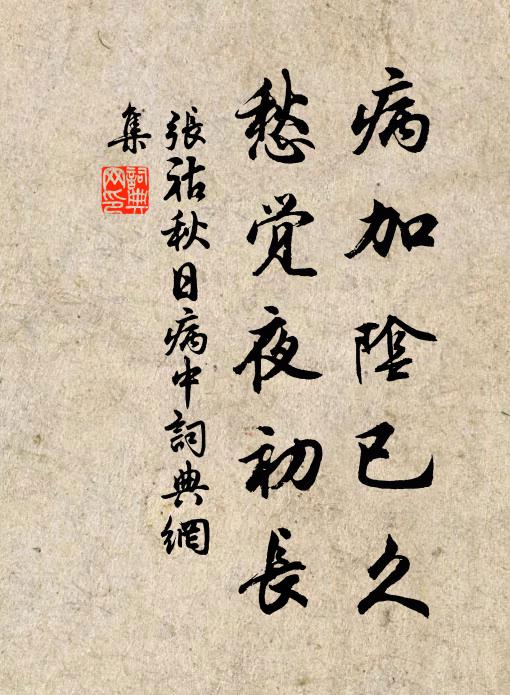 病加陰已久
愁觉夜初長
張祜秋日病中詞典網
集
詞典
网印